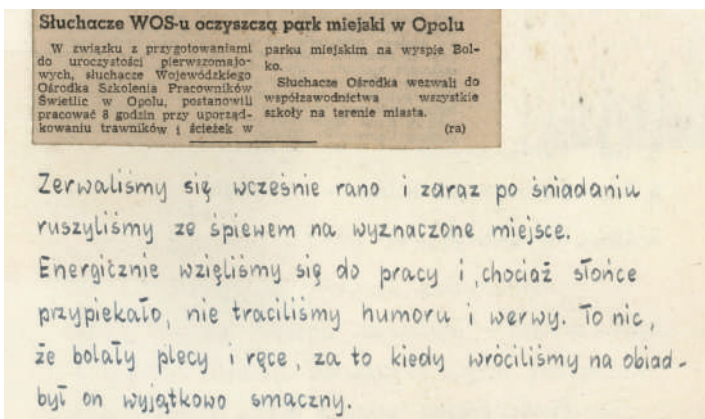 Słuchacze WOS-u oczyszczą park miejski w Opolu
W związku z przygotowaniami
do uroczystości pierwszomajo-
wych, słuchacze Wojewódzkiego
Ośrodka Szkolenia Pracowników
Świetlic w Opolu, postanowili
pracować 8 godzin przy uporząd-
kowaniu trawników i ścieżek w
parku miejskim na wyspie Bol-
ko.
Słuchacze Ośrodka wezwali do
współzawodnictwa wszystkie
szkoły na terenie miasta.
(ra)
Zerwaliśmy się wcześnie rano i zaraz po śniadaniu
ruszyliśmy ze śpiewem na wyznaczone miejsce.
Energicznie wzięliśmy się do pracy i, chociaż słońce
przypiekało, nie traciliśmy humoru i werwy. To nic,
że bolały plecy i ręce, za to kiedy wróciliśmy na obiad-
był on wyjątkowo smaczny.